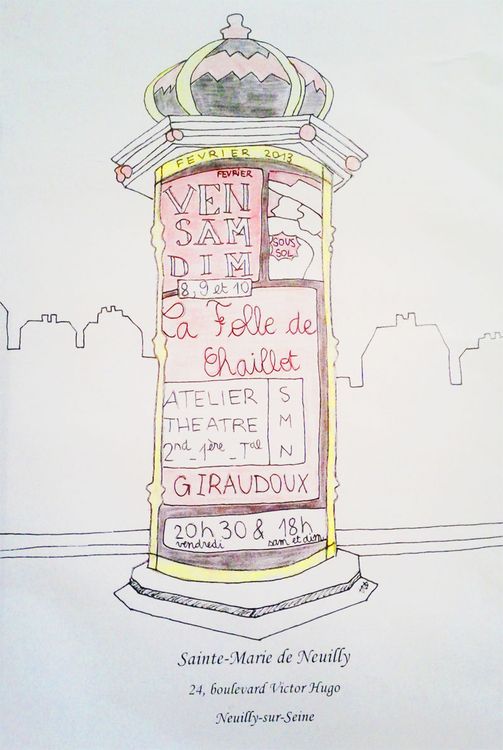 FEVRIER 2013
FEVRIER
VEN
SAM
DIM
8, 9 et 10
SOUS
SOL
La Folle de
Chaillot
ATELIER
THEATRE
2nd_1ère_Tal
S
M
N
GIRAUDOUX
20h30 & 18h
vendredi sam et dim
Sainte-Marie de Neuilly
24, boulevard Victor Hugo
Neuilly-sur-Seine